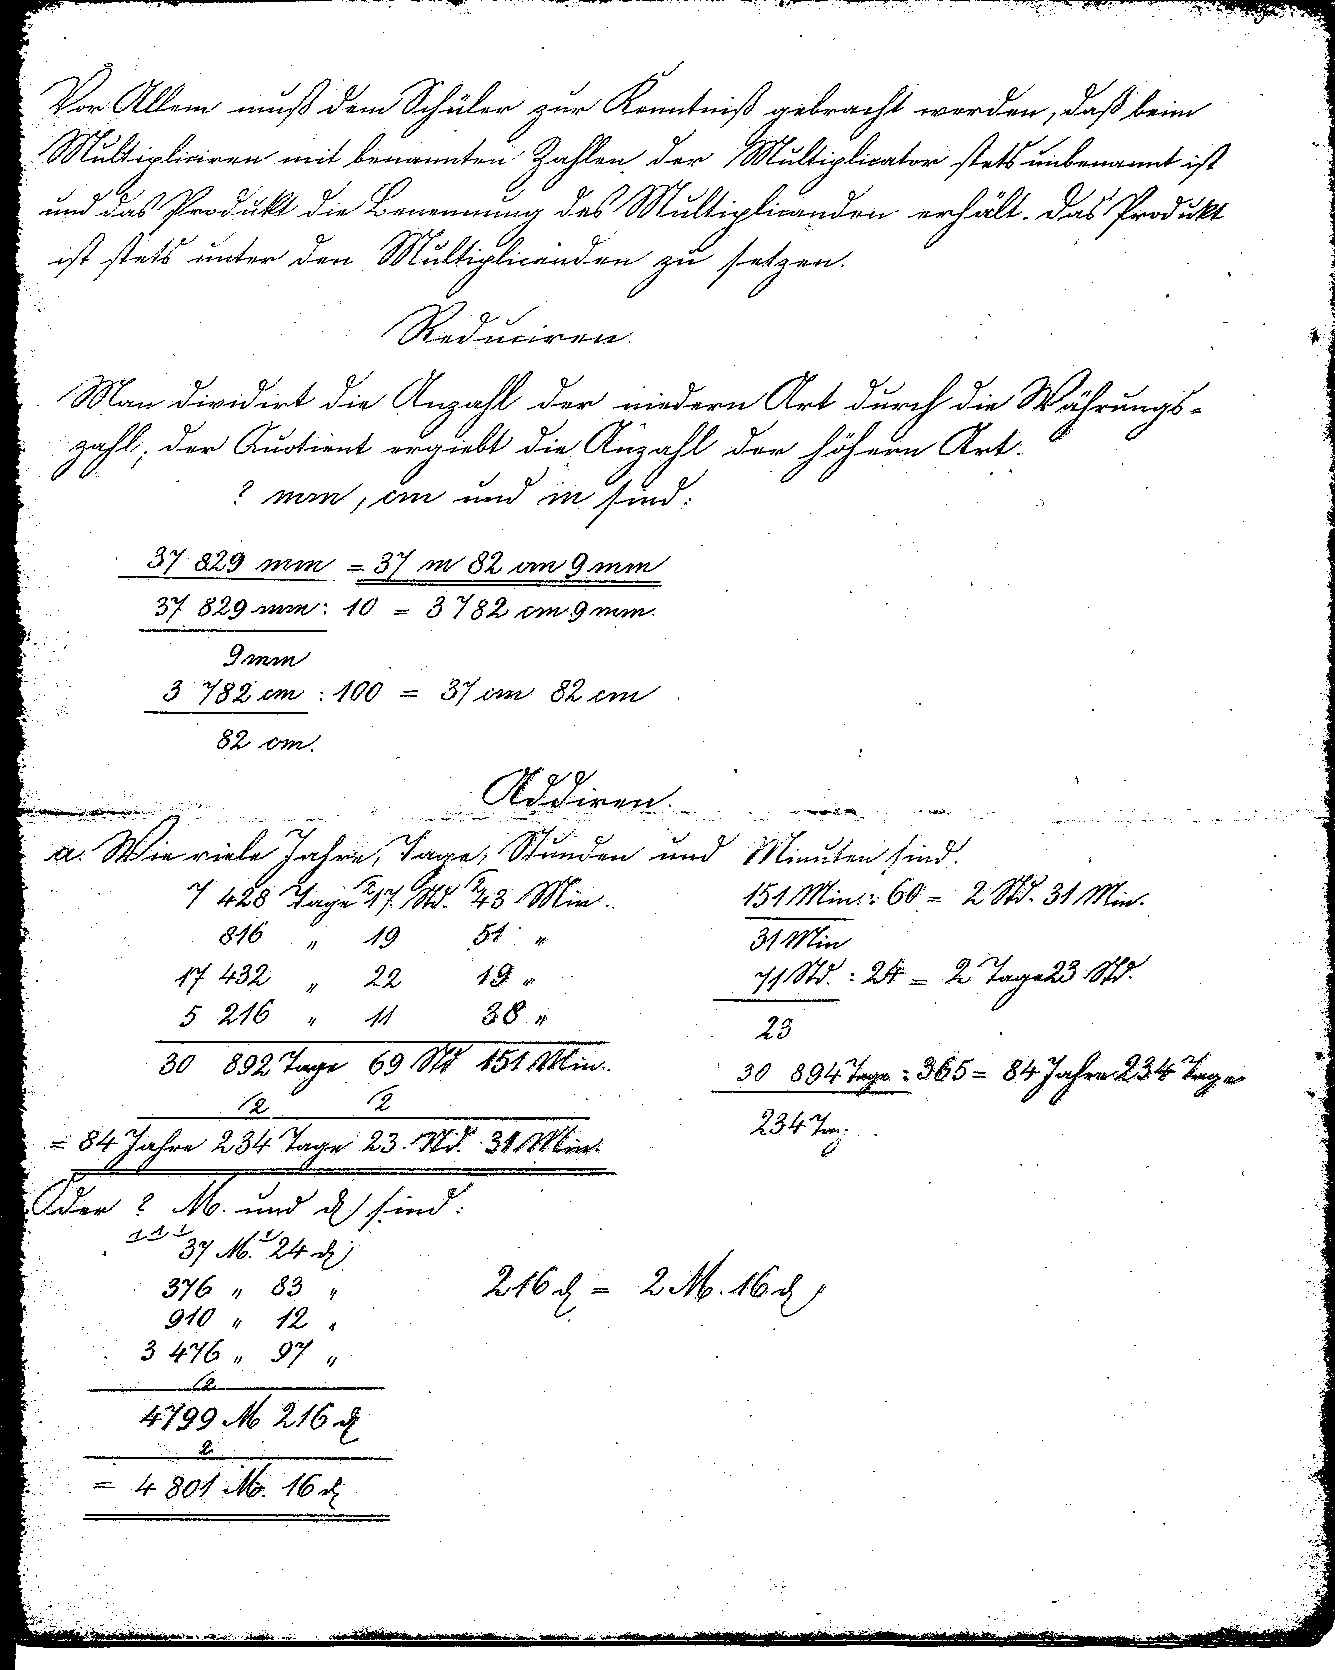 Vor Allem muß dem Schüler zur Kenntniß gebracht werden, daß beim
Multipliciren mit benannten Zahlen der Multiplicator stets unbenannt ist
und das Produkt die Benennung des Multiplicanden erhält. Das Produkt
ist stets unter den Multiplicanden zu setzen.
Reduciren.
Man dividirt die Anzahl der niedern Art durch die Währungs-
zahl, der Quotient ergiebt die Anzahl der höhern Art.
? mm, cm und m sind:
37 829 mm = 37 m 82 cm 9 mm
37 829 mm : 10 = 3782 cm 9 mm.
9 mm
3 782 cm : 100 = 37 cm 82 cm
82 cm.
Addiren.
a. Wie viele Jahre, Tage, Stunden und Minuten sind.
7 428 Tage 17 Std. 43 Min.
816 " 19 51 "
17 432 " 22 19 "
5 216 " 11 38 "
30 892 Tage 69 Std 151 Min.
2 2
= 84 Jahre 234 Tage 23 Std. 31 Min.
151 Min. : 60 = 2 Std. 31 Min.
31 Min
71 Std. : 24 = 2 Tage 23 Std.
23
30 894 Tage : 365 = 84 Jahre 234 Tage
234 Tag.
Oder ? M. und ₰ sind:
1 1 2 2
37 M. 24 ₰
376 " 83 "
910 " 12 "
3 476 " 97 "
2
4799 M 216 ₰
2
= 4 801 M. 16 ₰
216 ₰ = 2 M. 16 ₰